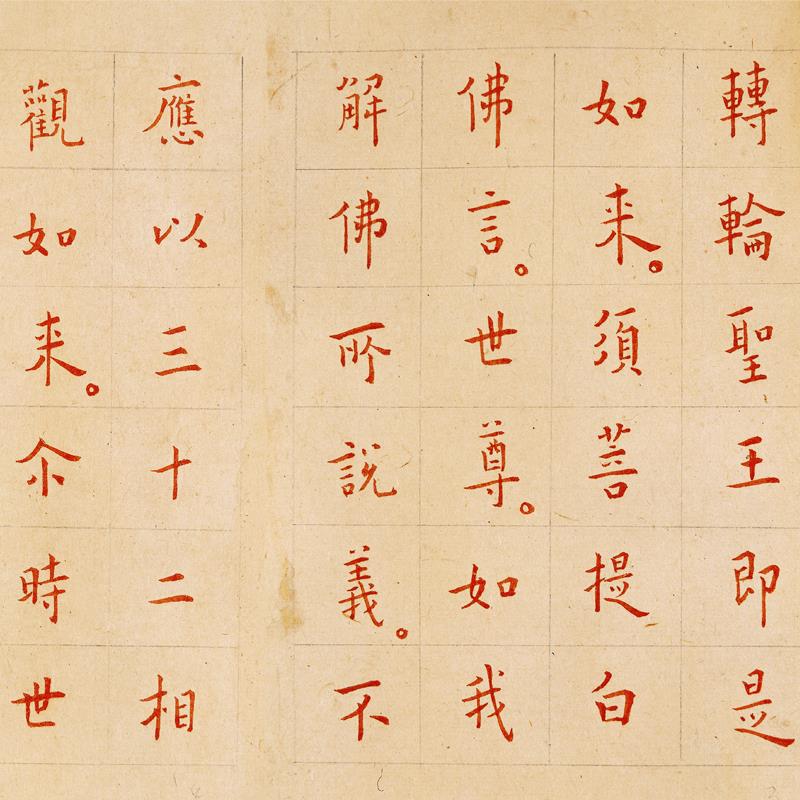 轉輪聖王即是
如来。須菩提白
佛言。世尊。如我
解佛所說義。不
應以三十二相
觀如来。尒時世